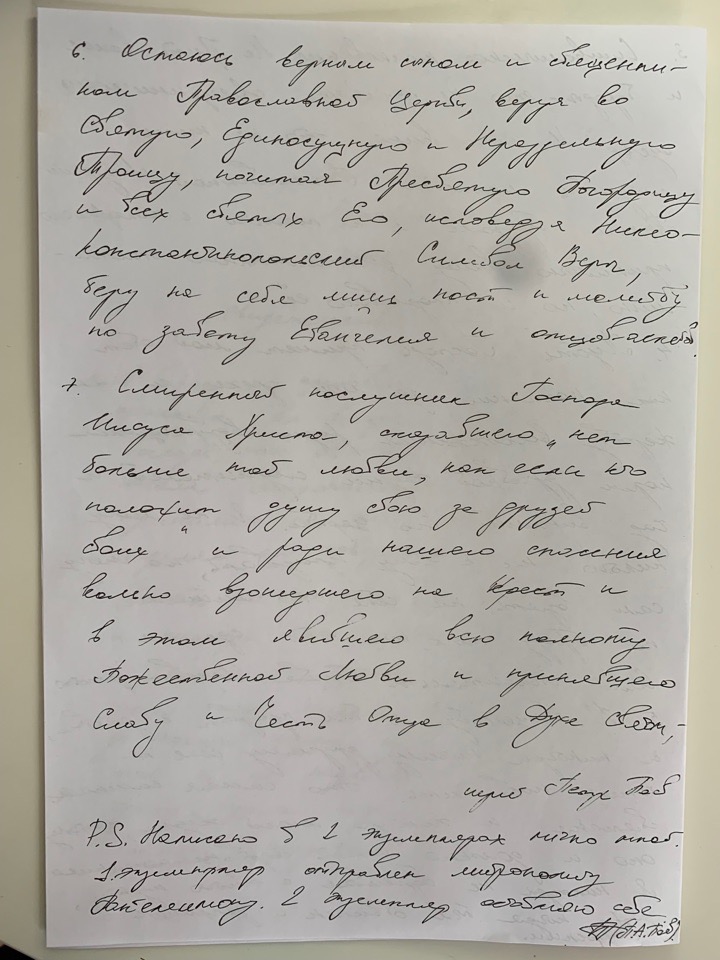 6. Остаюсь верным сыном и священни-
ком Православной Церкви, веруя во
Святую, Единосущную и Нераздельную
Троицу, почитая Пресвятую Богородицу
и всех святых Его, исповедуя Никео-
Константинопольский Символ Веры,
беру на себя лишь пост и молитву
по завету Евангелия и отцов-аскетов.
7. Смиренный послушник Господа
Иисуса Христа, сказавшего „нет
больше той любви, как если кто
положит душу свою за друзей
своих" и ради нашего спасения
волею взошедшего на Крест и
в этом явившего всю полноту
Божественной Любви и принявшего
Славу и Честь Отца в Духе Святом,-
иерей
P.S. Написано в 2 экземплярах лично мной.
1. экземпляр отправлен митрополиту
Пантелеимону. 2 экземпляр оставляю себе